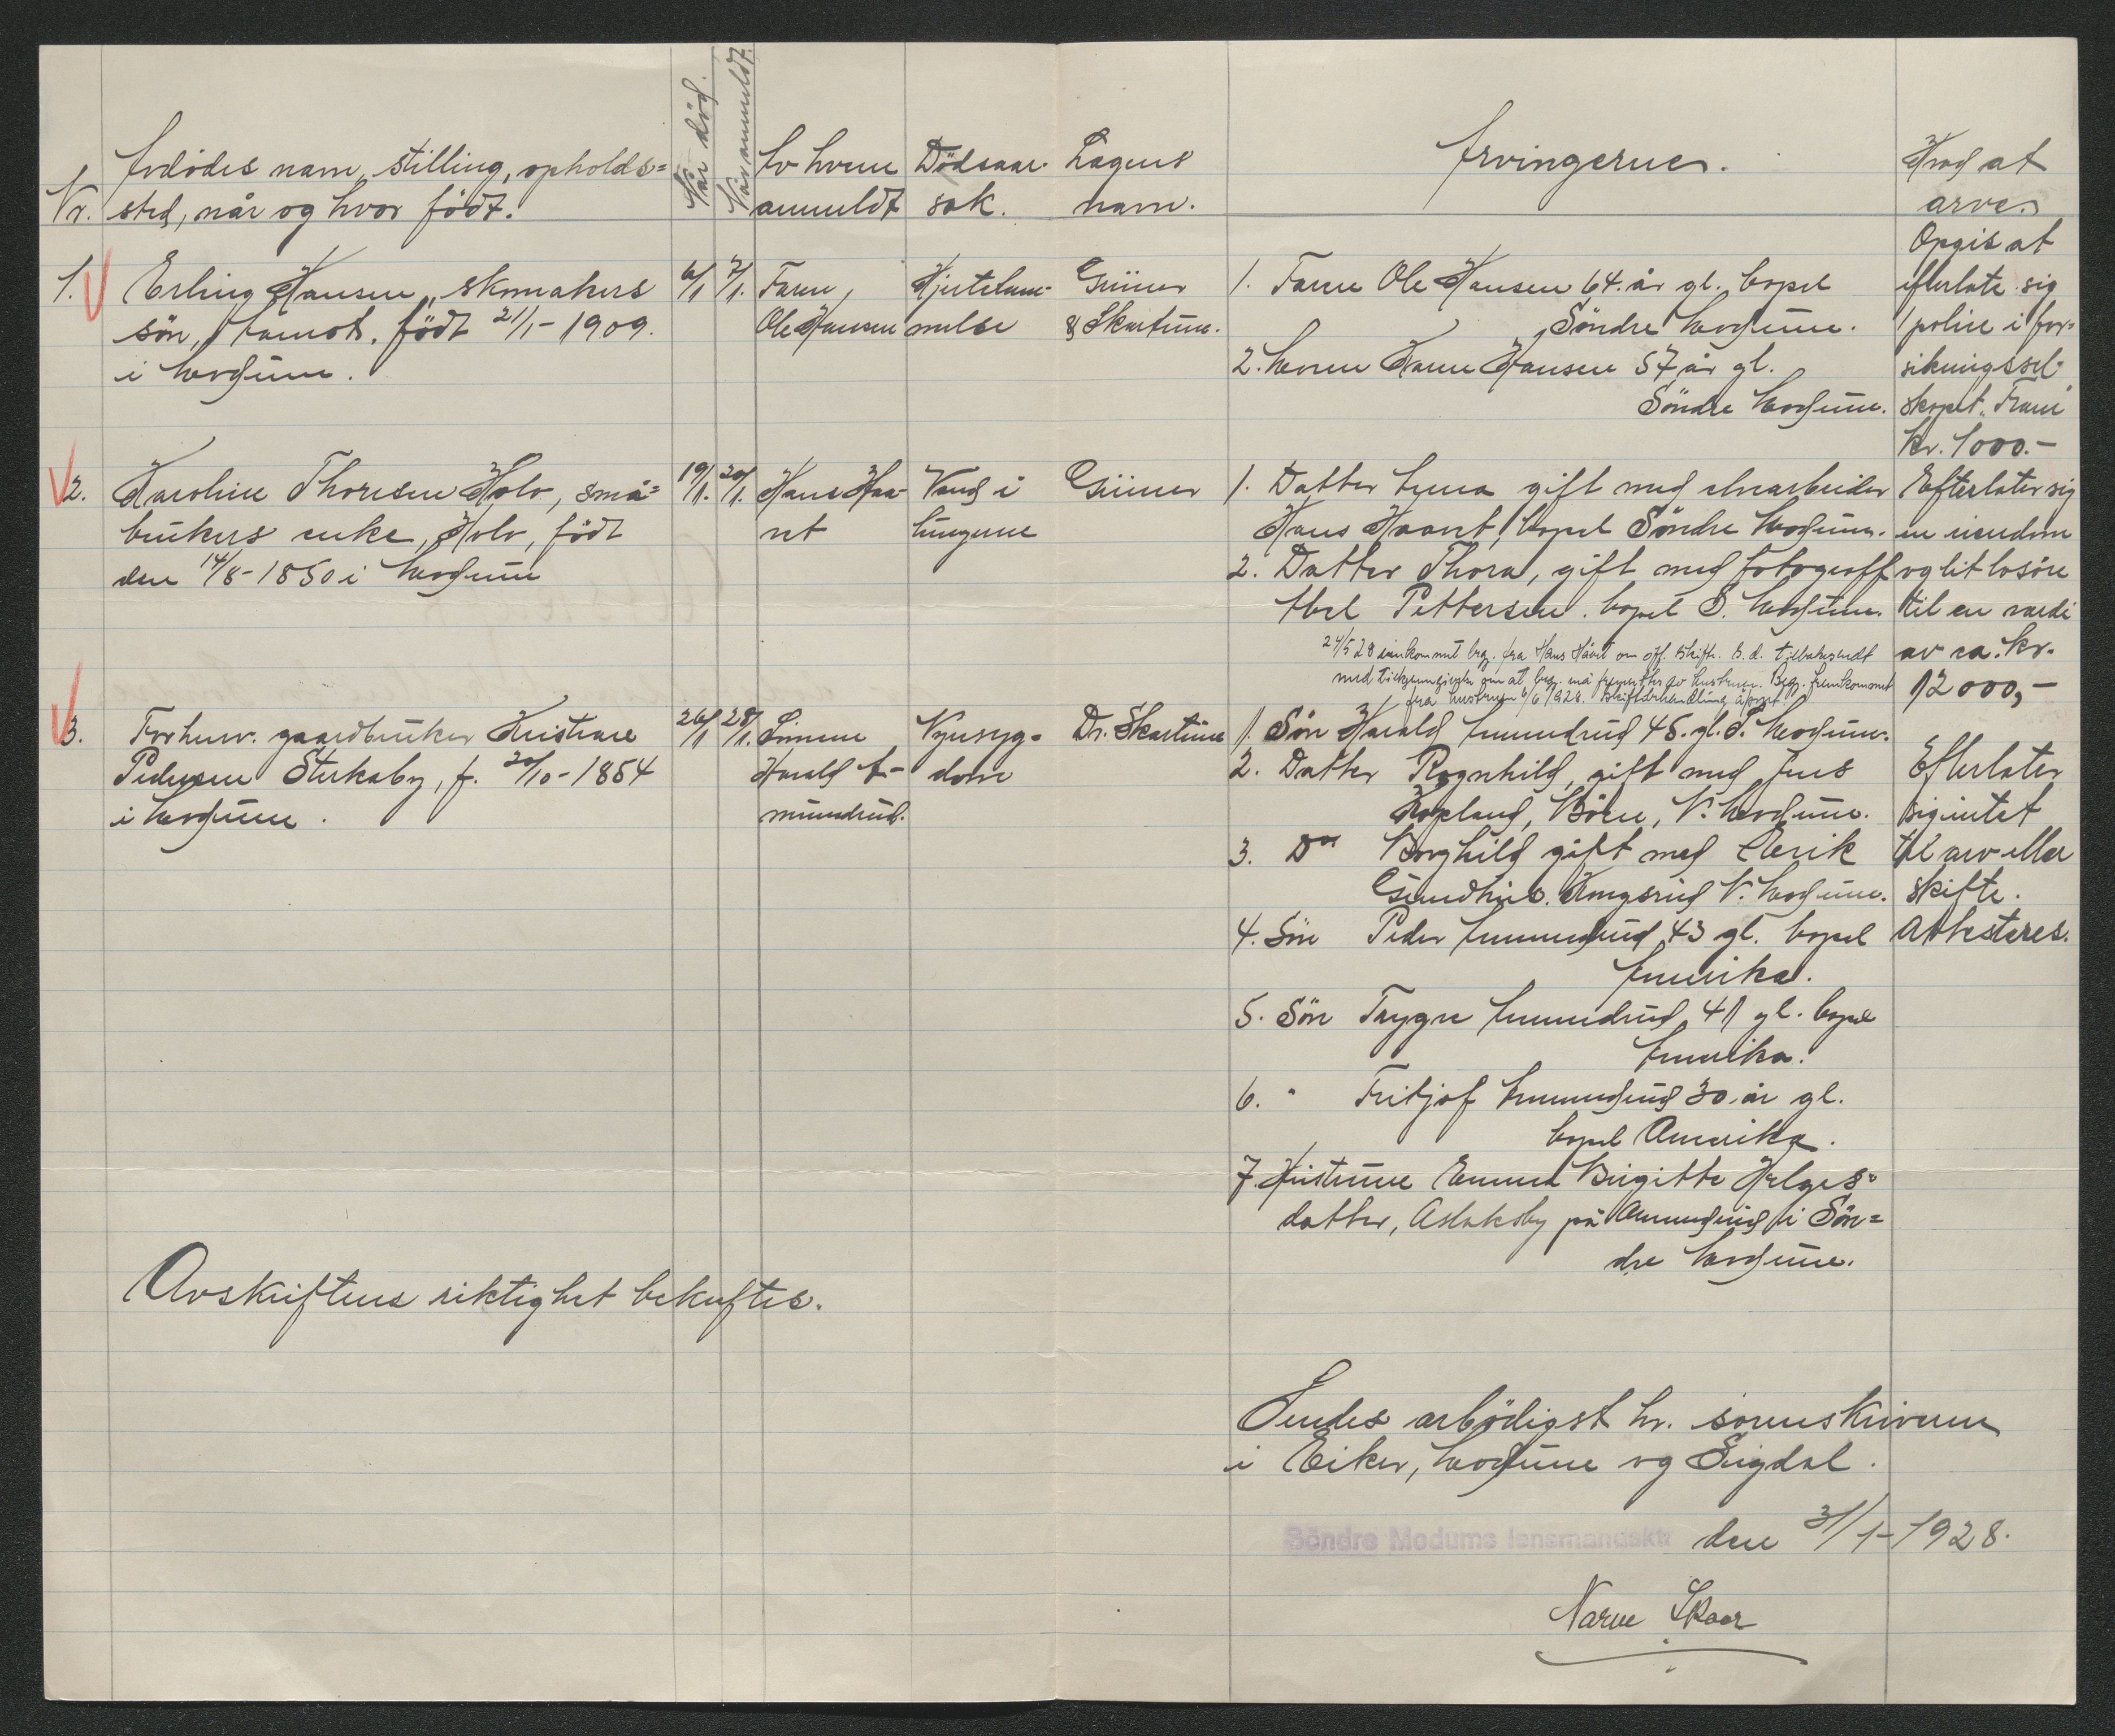 Når död.
Når anmeldt.
Nr.
Avdödes navn, stilling, opholds=
sted, når og hvor födt.
Av hvem
anmeldt
Dödsaar-
sak.
Lægens
navn.
Arvingerne.
Hvad at
arve.
1.
Erling Hansen, skomakers
sön, Åamot, födt 21/1-1909.
i Modum.
6/1
7/1.
Faren,
Ole Hansen
Hjertelam-
melse
Grüner
& Skartum.
1. Faren Ole Hansen 64 år gl. bopel
Söndre Modum.
2. Moren Karen Hansen 57 år gl.
Söndre Modum.
Opgis at
efterlate sig
1 police i for-
sikringssel-
skapet "Fram"
kr. 1000.-
2.
Karoline Thoresen Holv, små=
brukers enke, Holv, födt
den 14/8-1850 i Modum
19/1.
20/1.
Hans Haa-
vet
Vand i
lungene
Grüner
1. Datter Anna gift med elvearbeider
Hans Haavet, bopel Söndre Modum.
2. Datter Thora, gift med fotograff
Abel Pettersen. bopel S. Modum.
24/5 28 innkommet beg. fra Hans Hävet om off. skifte. S. d. tilbakesendt
med tilkjennegivelse om at beg. må fremsettes av hustruen. Beg. fremkommet
fra hustruen 6/6 1928. Skiftebehandling åpnet.
Efterlater sig
en eiendom
og lit losöre
til en værdi
av ca. kr.
12000,-
3.
Forhenv. gaardbruker Kristian
Pedersen Sterkaby, f. 20/10-1854
i Modum.
26/1
28/1.
Sönnen
Harald A-
mundrud.
Nyresyg-
dom
Dr. Skartum
1. Sön Harald Amundrud 45. gl. S. Modum.
2. Datter Ragnhild, gift med Jens
Kopland, Böen, V. Modum.
3. Do Borghild gift med Eerik
Gundhus. Kongsrud V. Modum.
4. Sön Peder Amundrud 43 gl. bopel
Amerika.
5. Sön Trygve Amundrud 41 gl. bopel
Amerika.
6. " Fritjof Amundrud 30 år gl.
bopel Amerika.
7. Hustruen Emma Birgitte Helges-
datter, Aslaksby på Amundrud i Sön=
dre Modum.
Efterlater
sig intet
til arv eller
skifte.
Attesteres.
Avskriftens riktighet bekreftes.
Sendes arbödigst hr. sorenskriveren
i Eiker, Modum og Sigdal.
Söndre Modums lensmandsktr den 31/1-1928.
Narve Skaar